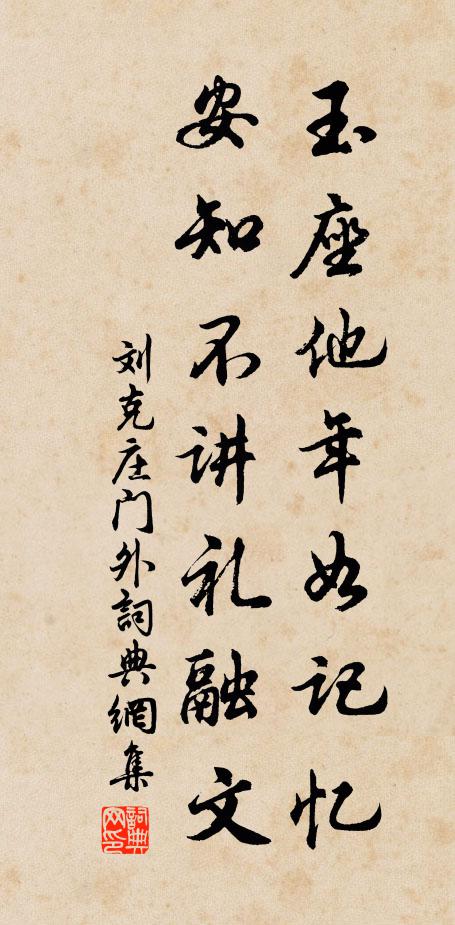 玉座他年如记忆
安知不讲礼融文
刘克庄门外詞典網集
詞典网印